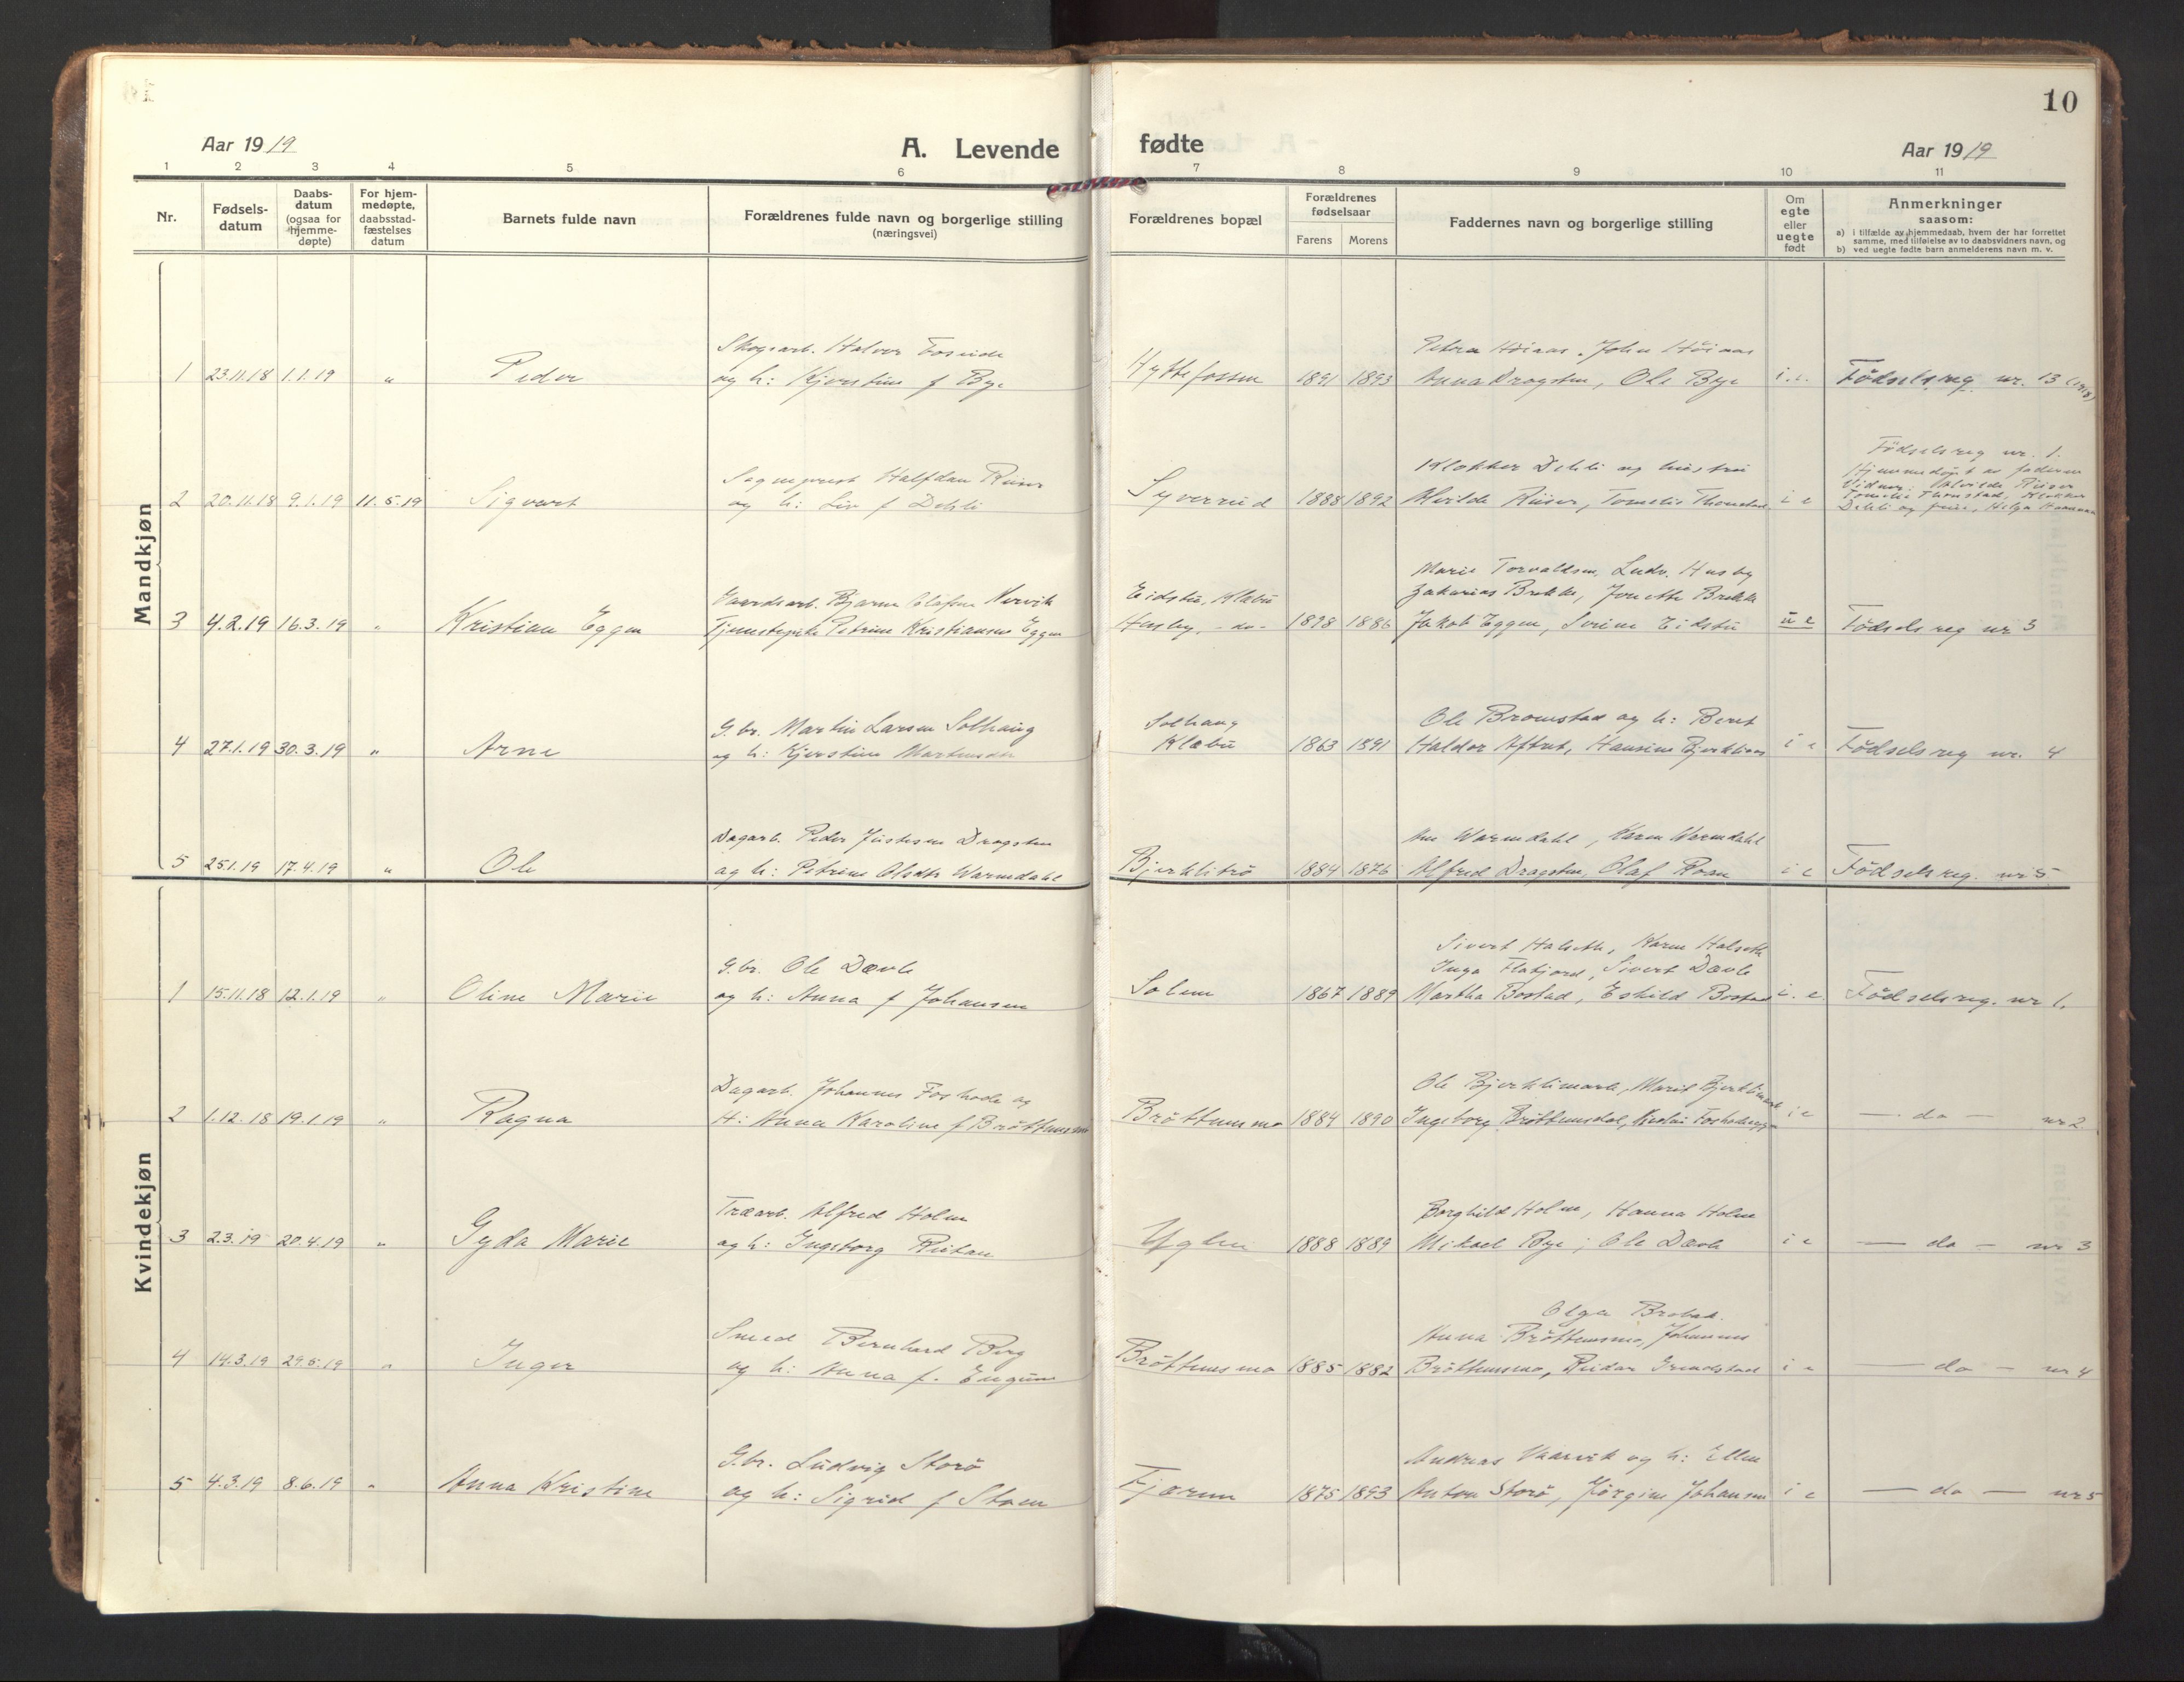 10
Aar 1919
A. Levende
fødte
Aar 1919
1 2 3 4 5 6 7 8 9 10 11
Nr.
Fødsels-
datum
Daabs-
datum
(ogsaa for
hjemme-
døpte)
For hjem-
medøpte,
daabsstad-
fæstelses
datum
Barnets fulde navn
Forældrenes fulde navn og borgerlige stilling
(næringsvei)
Forældrenes bopæl
Forældrenes
fødselsaar
Farens Morens
Faddernes navn og borgerlige stilling
Om
egte
eller
uegte
født
Anmerkninger
saasom:
a) i tilfælde av hjemmedaab, hvem der har forrettet
samme, med tilføielse av to daabsvidners navn, og
b) ved uegte fødte barn anmelderens navn m. v.
Mandkjøn
Skogsarb. Halvor
Petra Höiaas. John Höiaas
1 23.11.18 1.1.19 " Peder og h: Kjerstine f Bye Hyttefossen 1891 1893 Anna Dragsten, Ole Bye i.e. Födselsreg nr. 13 (1918)
Födselsreg nr. 1.
Halfdan
Klokker Dehli og hustru
Hjemmedöpt av faderen
Vidner: Alvilde Riiser
2 20.11.18 9.1.19 11.5.19 Sigvart og h: Liv f Dehli Syverrud 1888 1892 Alvilde Riiser, Thonstad i e Thonstad, Klokker
Dehli og frue, Helga
Marie Torvaldsen, Ludv. Husby
Gaardsarb. Bjarne Olafsen Nervik
Eidstu, Klæbu
Zakarias Brekke, Jonette Brekke
3 4.2.19 16.3.19 " Kristian Eggen Tjenestepike Petrine Kristiansen Eggen Husby, - do - 1898 1886 Jakob Eggen, Serine Eidstu u e Födselsreg nr 3
G.br. Martin Larsen Solhaug
Solhaug
Ole Bromstad og h: Beret
4 27.1.19 30.3.19 " Arne og h: Kjerstine Martinsdtr Klæbu 1863 1891 Haldor Aftret, Hansine i e Födselsreg nr. 4
Dagarb. Peder Justesen Dragsten
Ane Warmdahl, Karen Warmdahl
5 25.1.19 17.4.19 " Ole og h: Petrine Olsdtr Warmdahl Bjerklitrö 1884 1876 Alfred Dragsten, Olaf Roan i e Födselsreg. nr 5
Kvindekjøn
Sivert Halseth, Karen Halseth
G.br. Ole Dævle
Inga Flatjord, Sivert Dævle
1 15.11.18 12.1.19 " Oline Marie og h: Anna f Johansen Solem 1867 1889 Martha Bostad, Eskild Bostad i. e. Födselsreg. nr 1.
Dagarb. Johannes Foshode og
Ole Bjerklimark, Marit Bjerklimark
2 1.12.18 19.1.19 " Ragna H: Anna Karoline f Bröttemsmo Bröttemsmo 1884 1890 Ingeborg i e — do — nr 2
Træarb. Alfred Holm
Borghild Holm, Hanna Holm
3 2.3.19 20.4.19 " Gyda Marie og h: Ingeborg Rotan Uglen 1888 1889 Mikael Bye, Ole Dævle i e — do — nr 3
Olga
Smed Bernhard Berg
Anna Bröttemsmo, Johannes
4 14.3.19 29.5.19 " Inger og h: Anna f. Engum Bröttemsmo 1885 1882 Bröttemsmo, Reidar Grendstad i e — do — nr 4
G.br. Ludvig Storö
Andreas Vaarvik og h: Ellen
5 4.3.19 8.6.19 " Anna Kristine og h: Sigrid f Stoen Fjærem 1875 1893 Anton Storö, Jörgine Johansen i e — do — nr 5